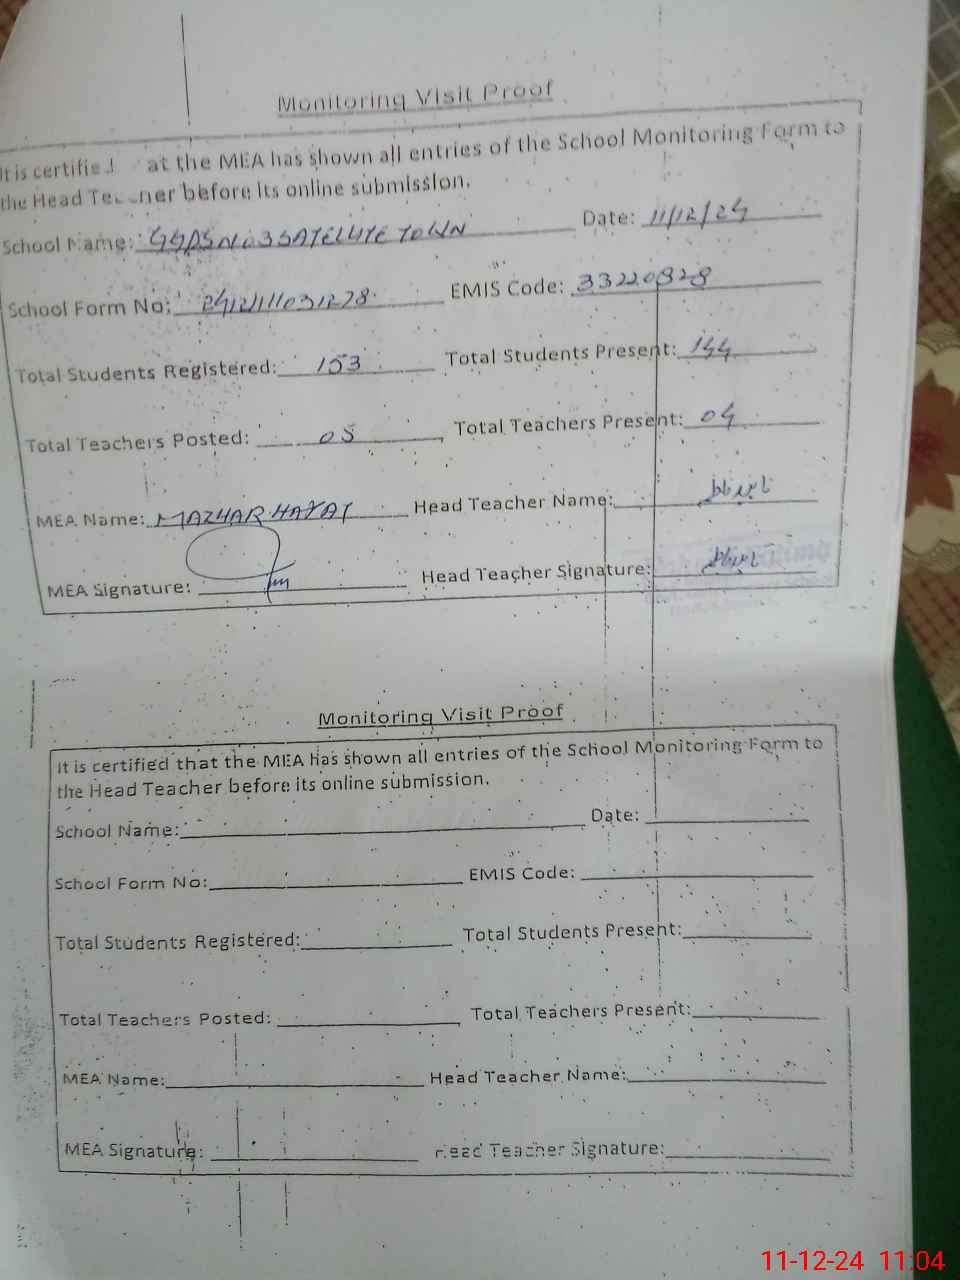 Monitoring Visit Proof
It is certified at the MEA has shown all entries of the School Monitoring Form to
the Head Teacher before its online submission.
School Name: GGPS NO 3 SATELLITE TOWN Date: 11/12/24
School Form No: EMIS Code: 33220828
Total Students Registered: 153 Total Students Present: 144
Total Teachers Posted: 05 Total Teachers Present: 04
MEA Name: MAZHAR HAYAT Head Teacher Name:
MEA Signature: Head Teacher Signature:
Monitoring Visit Proof
It is certified that the MEA has shown all entries of the School Monitoring Form to
the Head Teacher before its online submission.
School Name: Date:
School Form No: EMIS Code:
Total Students Registered: Total Students Present:
Total Teachers Posted: Total Teachers Present:
MEA Name: Head Teacher Name:
MEA Signature: Head Teacher Signature:
11-12-24 11:04